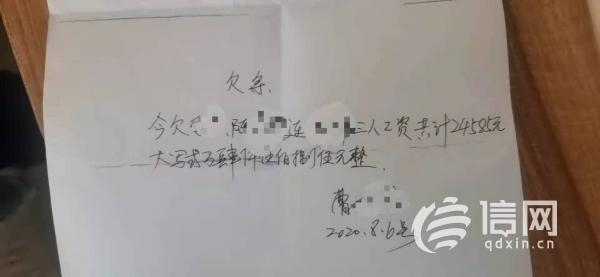 欠条.
今欠 连 三人工资共计24585元
大写贰万肆仟伍佰捌拾伍元整.
曹
2020.8.6号
信网
qdxin.cn